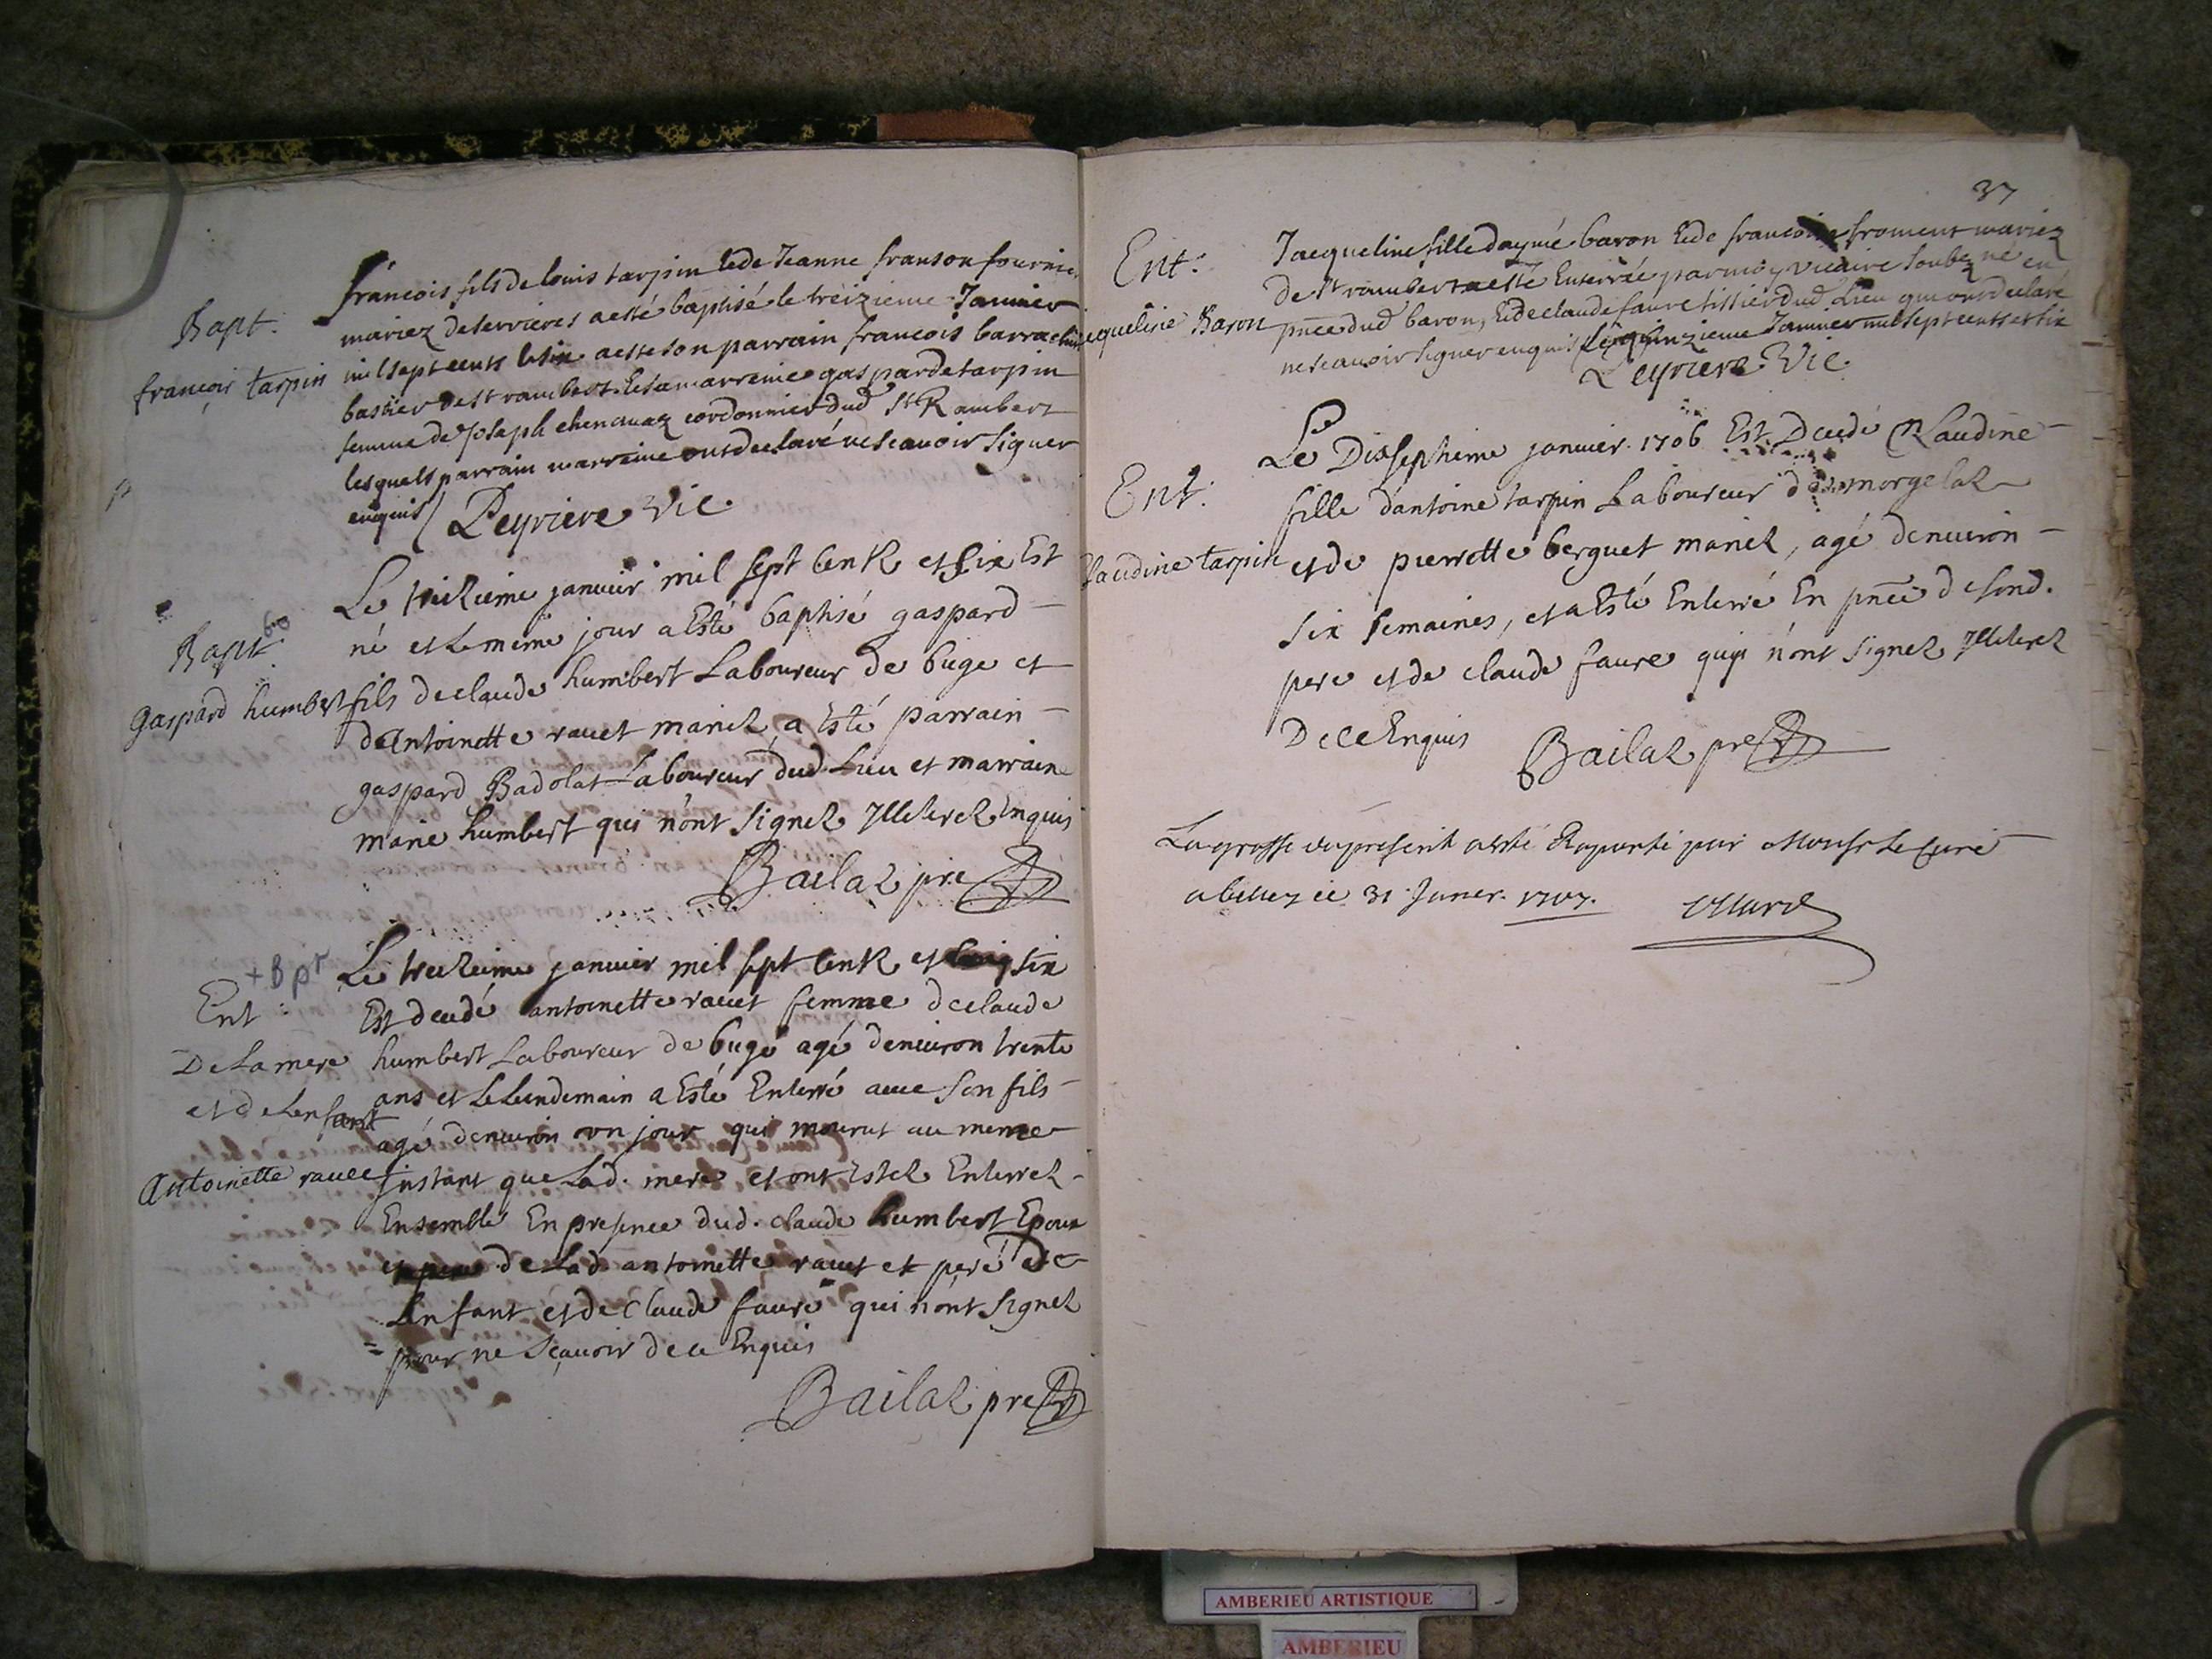 Bapt.
françois tarpin
francois fils de louis tarpin & de Jeanne franson
mariez de servieres a esté baptisé le treizieme Januier
mil sept cents & six a esté son parrain francois
bastier de st rambert. & sa marreine gasparde tarpin
femme de Joseph chenauaz cordonnier dud st Rambert
lesquels parrain marreine ont declaré ne scauoir signer
enquis / Leyriere Vic.
Bapt.
60
gaspard humbert
Le treizieme januier mil sept centz et six Est
né et le meme jour a Esté baptisé gaspard
fils de claude humbert Laboureur de buge et
dantoinette rauet mariez, a Esté parrain
gaspard Badolat Laboureur dud. Lieu et marraine
marie humbert qui n'ont signez Illeterez Enquis
Bailaz pre
+ Bpt
Ent:
De La mere
et de Lenfant
Antoinette rauet
Le treizieme januier mil sept centz et six
Est decedé antoinette rauet femme de claude
humbert Laboureur de buge agé denuiron trente
ans et Le Lendemain a Esté Enterré auec son fils
agé denuiron vn jour qui mourut au meme
Instant que Lad. mere et ont Estez Enterrez
Ensemble En presence dud. claude humbert Epoux
de Lad. antoinette rauet et pere de
Lenfant et de Claude faure qui n'ont signez
pour ne Sçauoir de ce Enquis
Bailaz pre
37
Ent:
Jacqueline Baron
Jacqueline fille daymé baron & de francoise froment mariez
de st rambert a esté Enterrée par moy vicaire soubzné en
pnce dud baron, & de claude faure tissier dud Lieu qui ont declaré
ne scauoir signer enquis / Le quinzieme Januier mil sept cents et six
Leyriere Vic.
Ent:
Claudine tarpin
Le Dixseptieme januier 1706 Est Decedé Claudine
fille d'antoine tarpin Laboureur de morgelaz
et de pierrette berguet mariez, agé denuiron
six semaines, et a Esté Enterré En pnce de sond.
pere et de claude faure qui n'ont signez Illeterez
De ce Enquis
Bailaz pre
La grosse du present a esté Raporté par Monsr Le Curé
a belley ce 31 Januer. 1707.